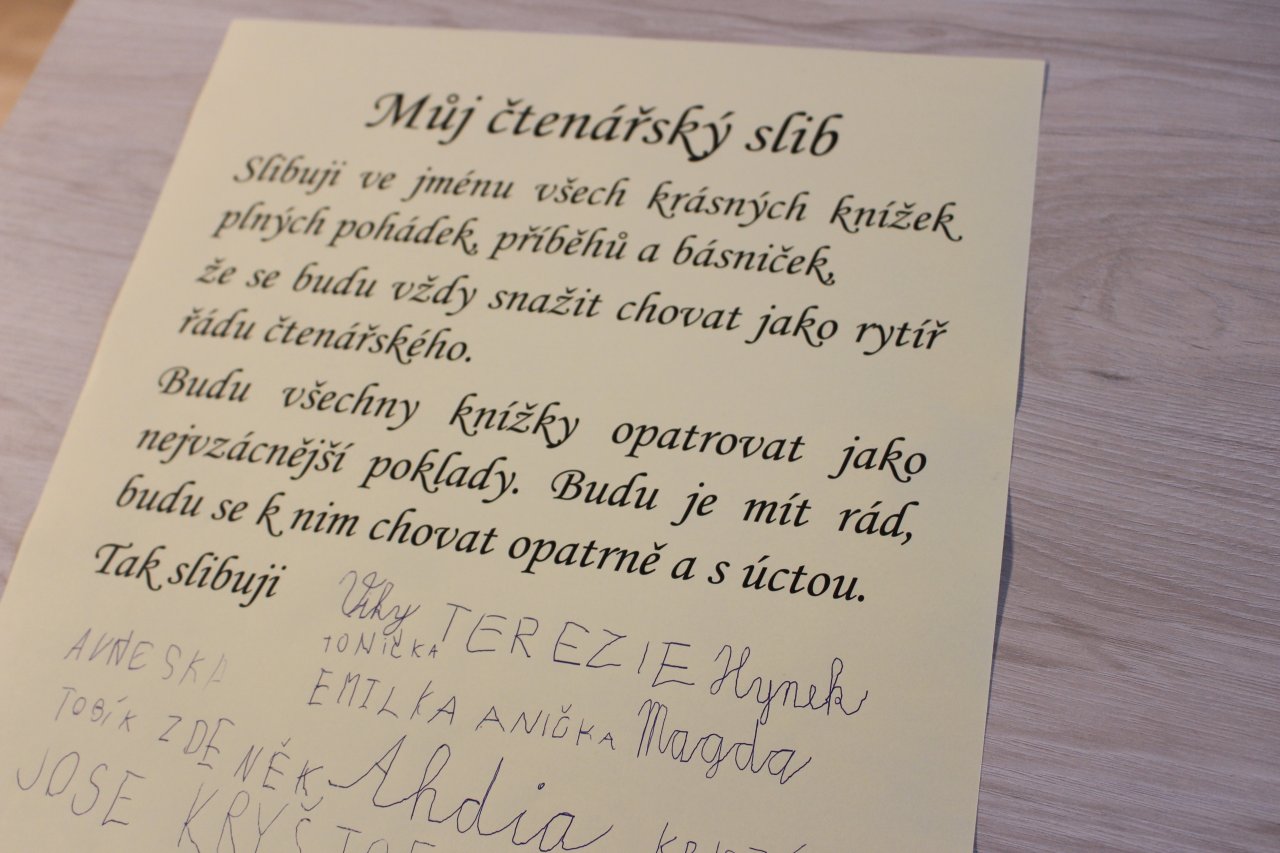 Můj čtenářský slib
Slibuji ve jménu všech krásných knížek
plných pohádek, příběhů a básniček,
že se budu vždy snažit chovat jako rytíř
řádu čtenářského.
Budu všechny knížky opatrovat jako
nejvzácnější poklady. Budu je mít rád,
budu se k nim chovat opatrně a s úctou.
Tak slibuji
Viky TEREZIE Hynek
TONIČKA
EMILKA ANIČKA Magda
TOBÍK ZDENĚK Ahdia
JOSE KRYŠTOF